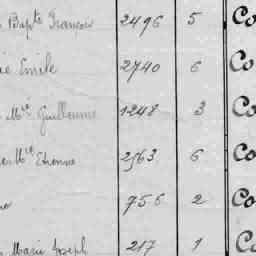 Bapte Francois 2496 5 Co
ie Emile 2740 6 Co
Mce Guillaume 1248 3 Co
Mce Etienne 2563 6 Co
756 2 Co
Marie Joseph 217 1 Co